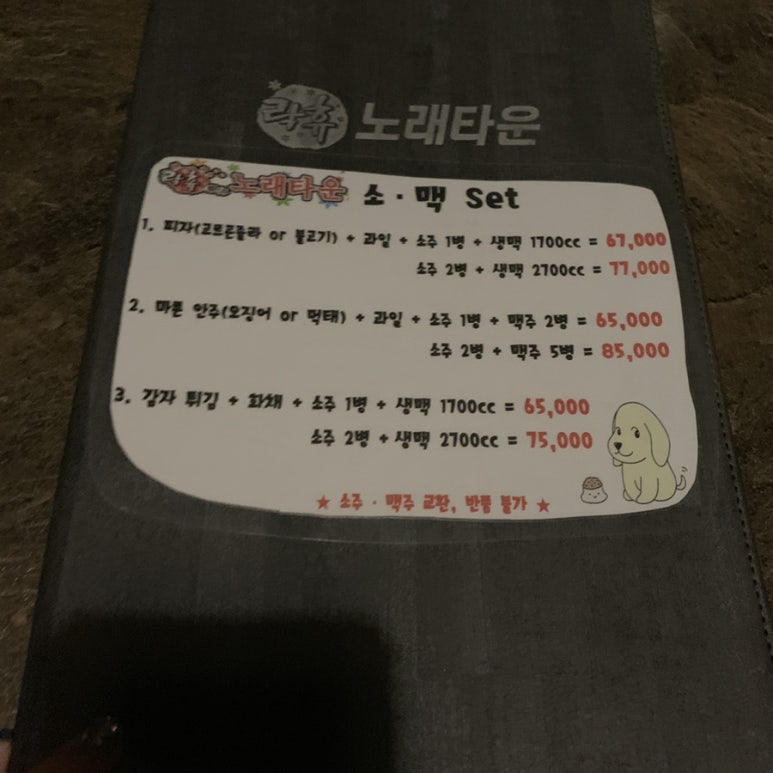 락휴 노래타운
노래타운 소·맥 Set
1. 피자(고르곤졸라 or 불고기) + 과일 + 소주 1병 + 생맥 1700cc = 67,000
소주 2병 + 생맥 2700cc = 77,000
2. 마른 안주(오징어 or 먹태) + 과일 + 소주 1병 + 맥주 2병 = 65,000
소주 2병 + 맥주 5병 = 85,000
3. 감자 튀김 + 화채 + 소주 1병 + 생맥 1700cc = 65,000
소주 2병 + 생맥 2700cc = 75,000
★ 소주 · 맥주 교환, 반품 불가 ★